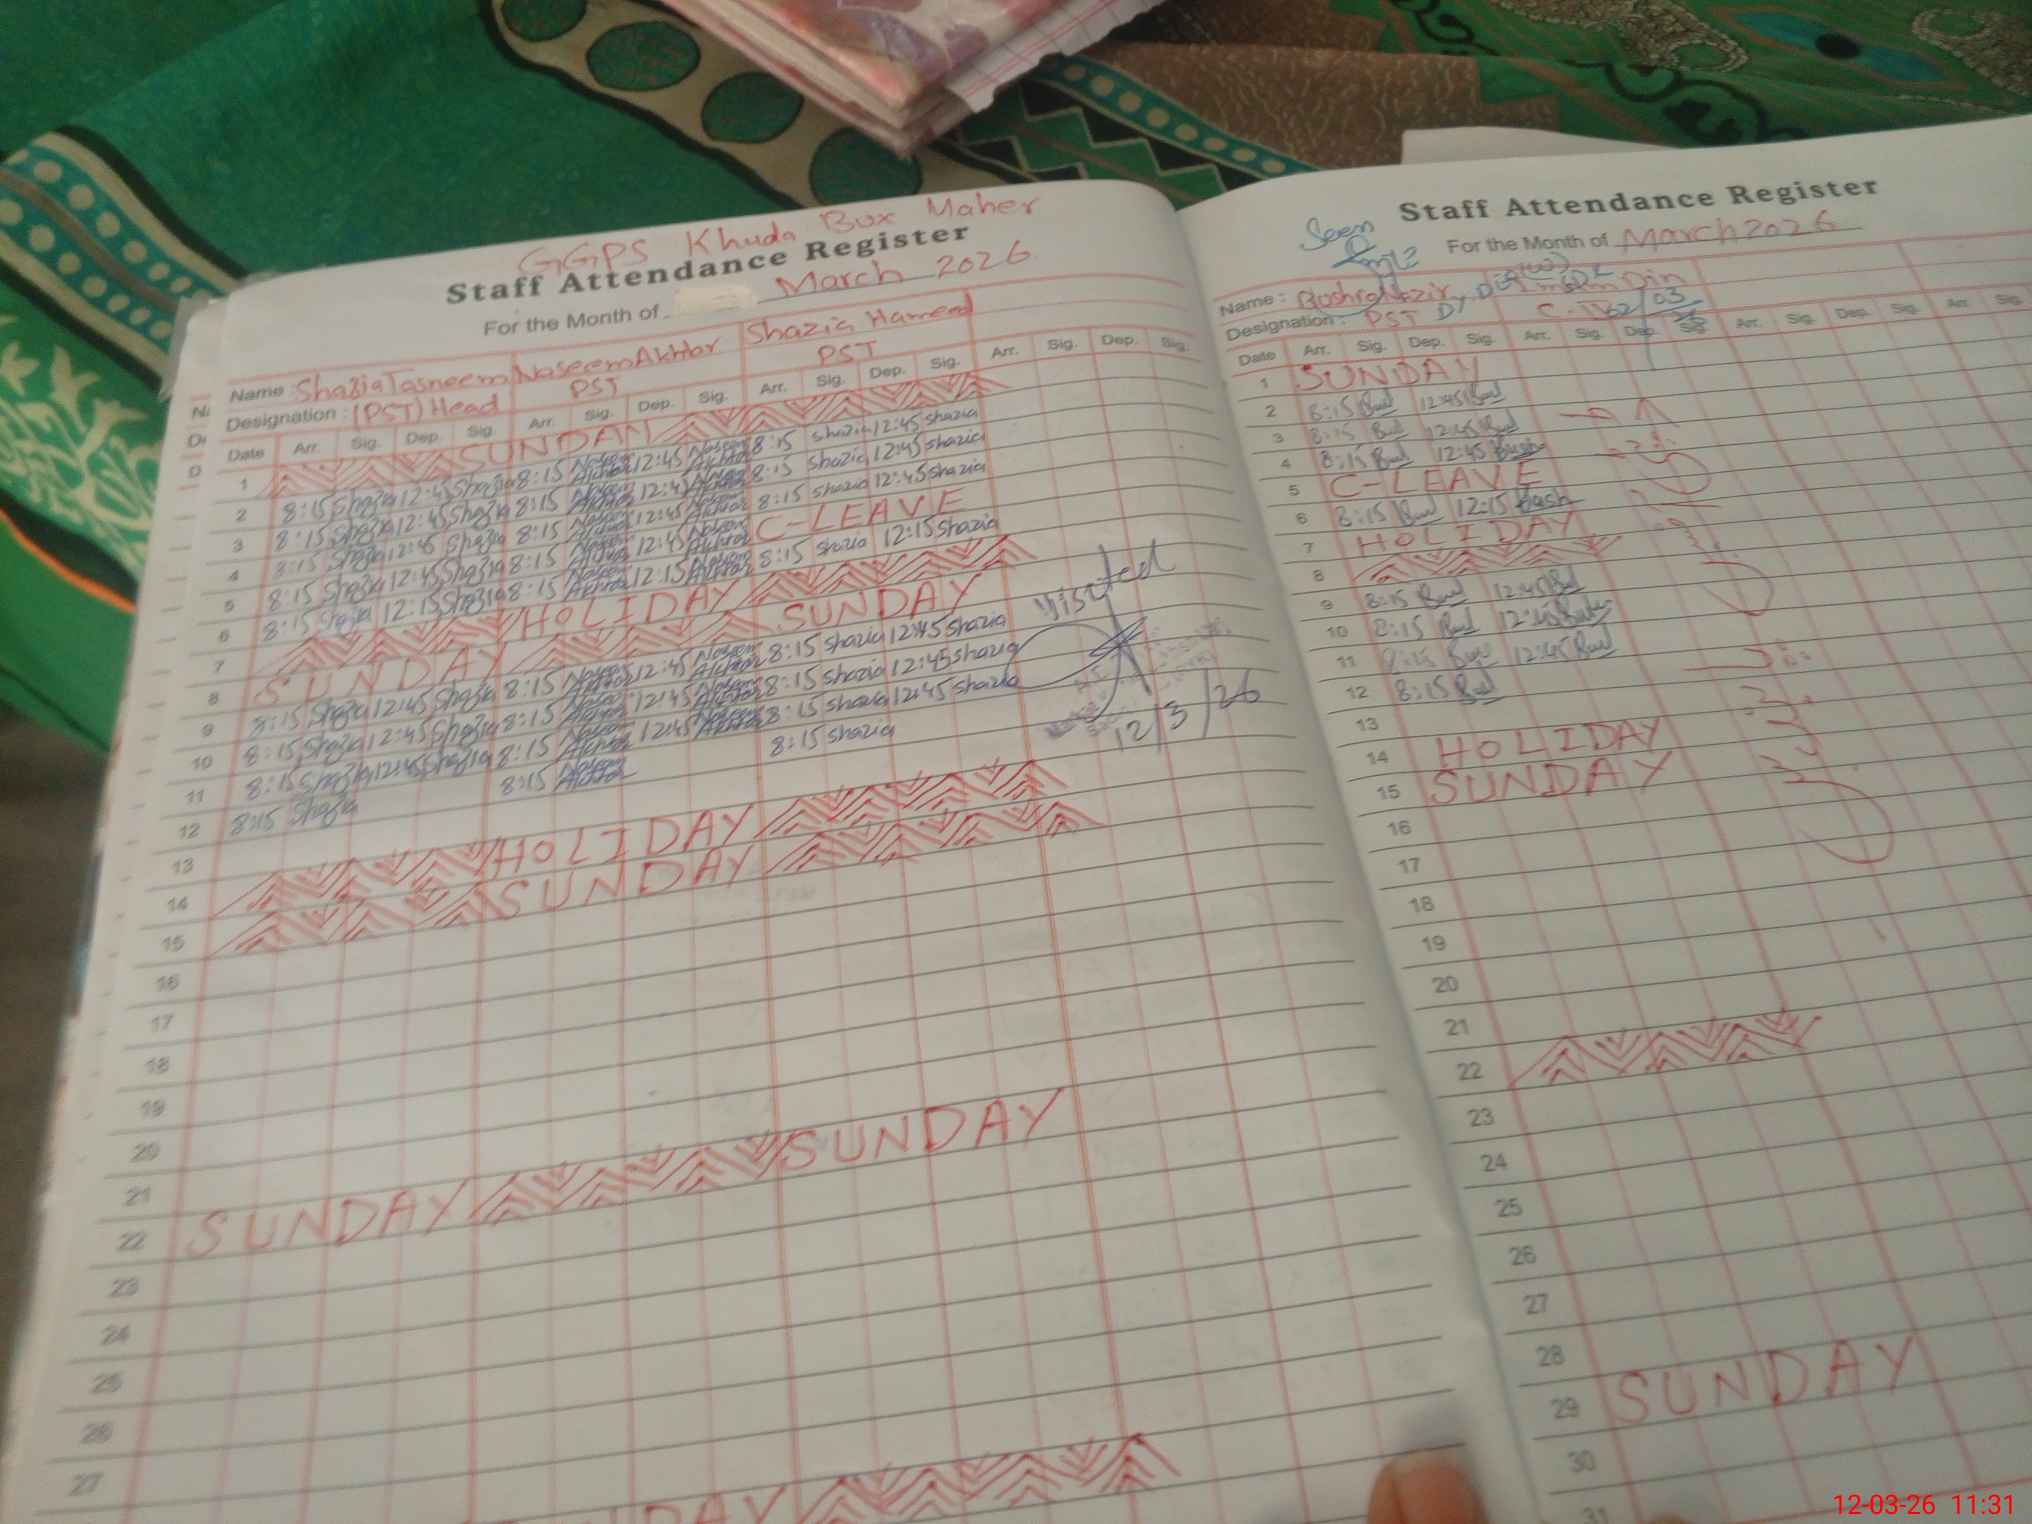 GGPS Khuda Bux Maher
Staff Attendance Register
For the Month of March 2026
Name Shazia Tasneem Naseem Akhtar Shazia Hameed
Designation : (PST) Head PST PST
Date Arr. Sig. Dep. Sig. Arr. Sig. Dep. Sig. Arr. Sig. Dep. Sig. Arr. Sig. Dep. Sig.
1 SUNDAY
2 8:15 Shazia 12:45 Shazia 8:15 Naseem Akhtar 12:45 Naseem Akhtar 8:15 Shazia 12:45 Shazia
3 8:15 Shazia 12:45 Shazia 8:15 Naseem Akhtar 12:45 Naseem Akhtar 8:15 Shazia 12:45 Shazia
4 8:15 Shazia 12:45 Shazia 8:15 Naseem Akhtar 12:45 Naseem Akhtar 8:15 Shazia 12:45 Shazia
5 8:15 Shazia 12:45 Shazia 8:15 Naseem Akhtar 12:45 Naseem Akhtar C-LEAVE
6 8:15 Shazia 12:15 Shazia 8:15 Naseem Akhtar 12:15 Naseem Akhtar 8:15 Shazia 12:15 Shazia
7 HOLIDAY
8 SUNDAY SUNDAY
9 8:15 Shazia 12:45 Shazia 8:15 Naseem Akhtar 12:45 Naseem Akhtar 8:15 Shazia 12:45 Shazia
10 8:15 Shazia 12:45 Shazia 8:15 Naseem Akhtar 12:45 Naseem Akhtar 8:15 Shazia 12:45 Shazia
11 8:15 Shazia 12:45 Shazia 8:15 Naseem Akhtar 12:45 Naseem Akhtar 8:15 Shazia 12:45 Shazia
12 8:15 Shazia 8:15 Naseem Akhtar 8:15 Shazia
visited
12/3/26
13
14 HOLIDAY
15 SUNDAY
16
17
18
19
20
21
22 SUNDAY SUNDAY
23
24
25
26
27
Seen
Staff Attendance Register
For the Month of March 2026
Name : Bushra Nazir Din
Designation : PST
Date Arr. Sig. Dep. Sig. Arr. Sig. Dep. Arr. Sig. Dep. Sig. Arr. Sig.
1 SUNDAY
2 8:15 12:45
3 8:15 12:45
4 8:15 12:45
5 C-LEAVE
6 8:15 12:15
7 HOLIDAY
8
9 8:15 12:45
10 8:15 12:45
11 8:15 12:45
12 8:15
13
14 HOLIDAY
15 SUNDAY
16
17
18
19
20
21
22
23
24
25
26
27
28
29 SUNDAY
30
31
12-03-26 11:31